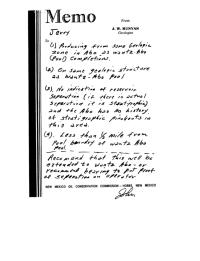 Memo
From
J. W. RUNYAN
Geologist
To Jerry
(1) Producing from same Geologic
zone in Abo as Wantz Abo
(Pool) Completions.
(2) On same geologic structure
as Wantz-Abo Pool
(3) No indication of reservoir
separation (if there is actual
separation it is stratigraphic)
and the Abo has No history
of stratigraphic pinchouts in
this area.
(4). Less than ½ mile from
Pool boundry of Wantz Abo
Pool
Recomend that this well be
extended to Wantz Abo - or
recommend hearing to put proof
of separation on operator
NEW MEXICO OIL CONSERVATION COMMISSION - HOBBS, NEW MEXICO